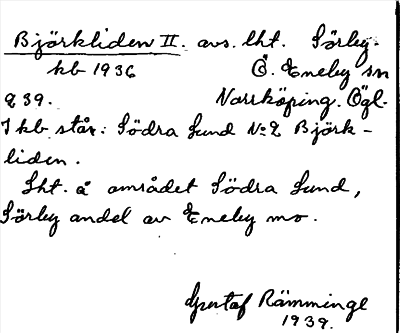 Björkliden II. avs. lht. Sörby.
kb 1936 Ö. Eneby sn
939. Norrköping. Ögl.
I kb står: Södra Lund No 2 Björk-
liden.
Lht. å området Södra Lund,
Sörby andel av Eneby mo.
Gustaf Rämminge
1939.